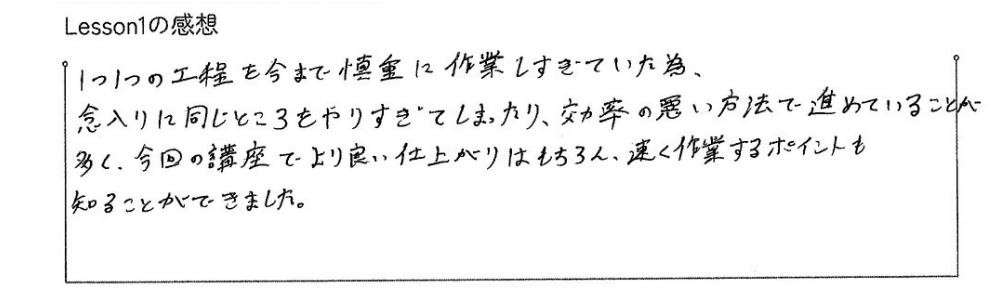 Lesson1の感想
1つ1つの工程を今まで慎重に作業しすぎていた為、
念入りに同じところをやりすぎてしまったり、効率の悪い方法で進めていることが
多く、今回の講座でより良い仕上がりはもちろん、速く作業するポイントも
知ることができました。